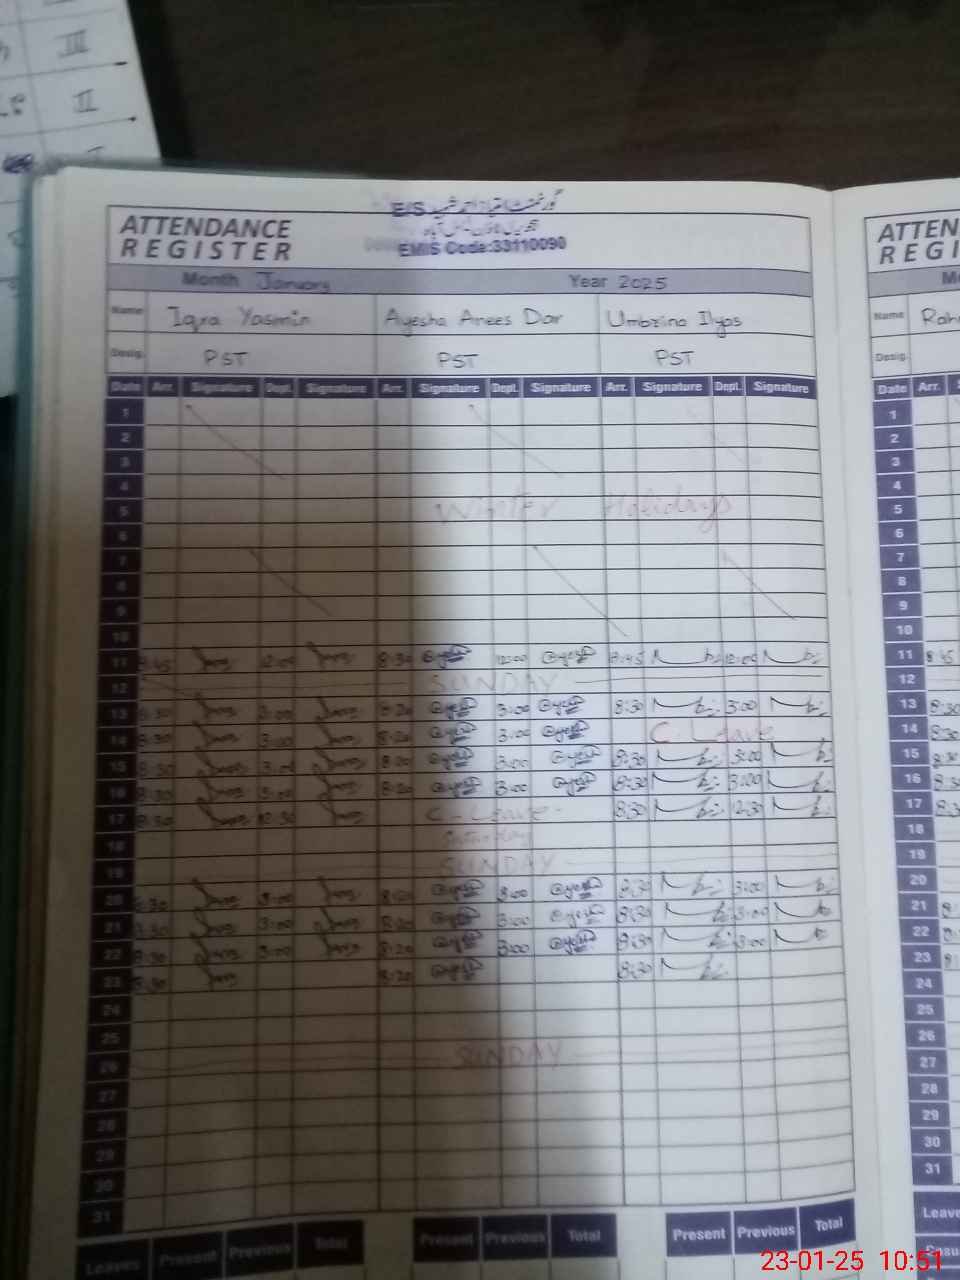 III
II
گورنمنٹ امتیاز احمد شہید E/S
EMIS Code:33110090
ATTENDANCE REGISTER
Month January Year 2025
Name Iqra Yasmin Ayesha Anees Dar Umbrina Ilyas
Desig. PST PST PST
Date Arr. Signature Dept. Signature Arr. Signature Dept. Signature Arr. Signature Dept. Signature
1
2
3
4
5 Winter Holidays
6
7
8
9
10
11 8:45 12:00 8:30 12:00 8:45 12:00
12 SUNDAY
13 8:30 3:00 8:20 3:00 8:30 3:00
14 8:30 3:00 8:20 3:00 C. Leave
15 8:30 3:00 8:20 3:00 8:30 3:00
16 8:30 3:00 8:20 3:00 8:30 3:00
17 8:30 12:30 C-Leave- 8:30 12:30
18 Saturday
19 SUNDAY
20 8:30 3:00 8:20 3:00 8:30 3:00
21 8:30 3:00 8:20 3:00 8:30 3:00
22 8:30 3:00 8:20 3:00 8:30 3:00
23 8:30 8:20 8:30
24
25
26 SUNDAY
27
28
29
30
31
Leaves Present Previous Total Present Previous Total Present Previous Total
ATTEN
REGI
Name
Desig.
Date Arr.
1
2
3
4
5
6
7
8
9
10
11 8:45
12
13 8:30
14 8:30
15 8:30
16 8:30
17
18
19
20
21
22
23
24
25
26
27
28
29
30
31
Leave
23-01-25 10:51